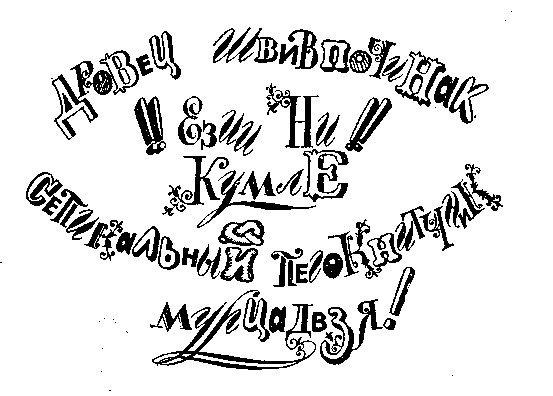 Дровец Швивпочинак
!! Езии Ни !!
КумлЕ
Сепикальный пегокнитчик
мурцадвзя!